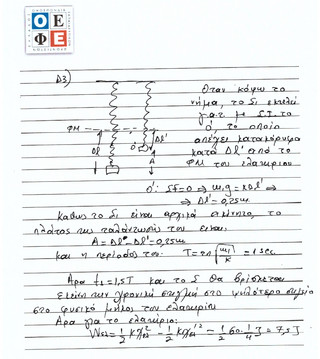 ΟΕΦΕ
Δ3)
Όταν κόψω το
νήμα, το Σ1 εκτελεί
γ.α.τ με Θ.Ι. το
Ο' το οποίο
ΦΜ
Δl'
απέχει κατακόρυφα
Δl
Ο'
κατά Δl' από το
Α
ΦΜ του ελατηρίου
Ο': ΣF=0 ⇒ m₁g = KΔl' ⇒
⇒ Δl' = 0,25m
Καθώς το Σ1 είναι αρχικά ακίνητο, το
πλάτος της ταλάντωσής του είναι:
A = Δl - Δl' = 0,25m
και η περίοδος του: T = 2π√(m₁/K) = 1 sec.
Άρα t₁ = 1,5T και το Σ θα βρίσκεται
εκείνη την χρονική στιγμή στο ψηλότερο σημείο
στο φυσικό μήκος του ελατηρίου
Άρα για το ελατήριο: